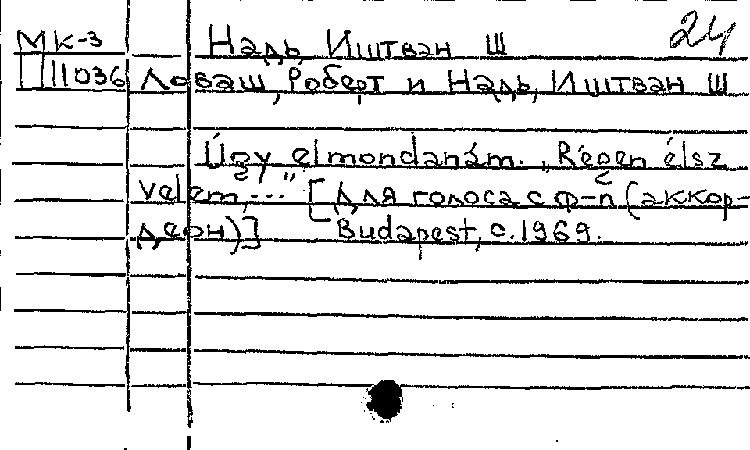 24
МК-3 Надь, Иштван Ш
П11036 Ловаш, Роберт и Надь, Иштван Ш
Úgy elmondanám. „Régen élsz
velem,..." [Для голоса с ф-п (аккор-
деон)] Budapest, c.1969.